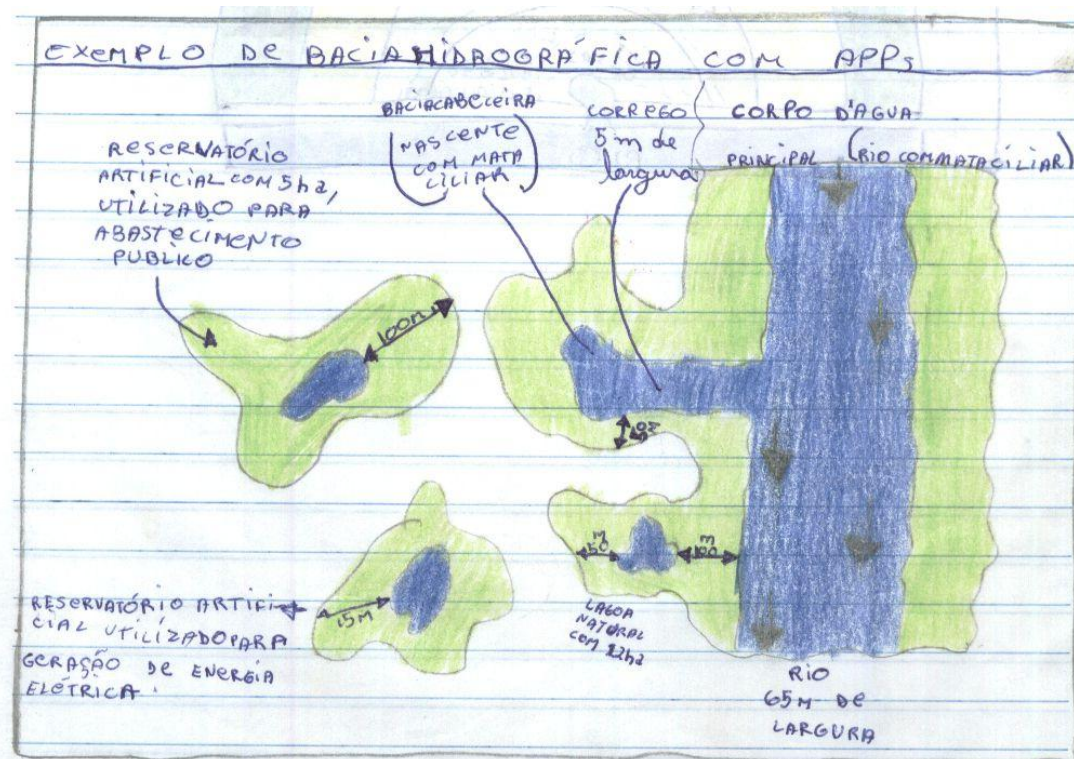 EXEMPLO DE BACIA HIDROGRÁFICA COM APPs
RESERVATÓRIO
ARTIFICIAL COM 5ha,
UTILIZADO PARA
ABASTECIMENTO
PUBLICO
BACIACABECEIRA
(NASCENTE
COM MATA
CILIAR)
CORREGO
5 m de
largura
CORPO D'AGUA
PRINCIPAL (RIO COM MATA CILIAR)
100m
15M
50m
100m
RESERVATÓRIO ARTIFI-
CIAL UTILIZADO PARA
GERAÇÃO DE ENERGIA
ELÉTRICA.
LAGOA
NATURAL
COM 22ha
RIO
65M DE
LARGURA